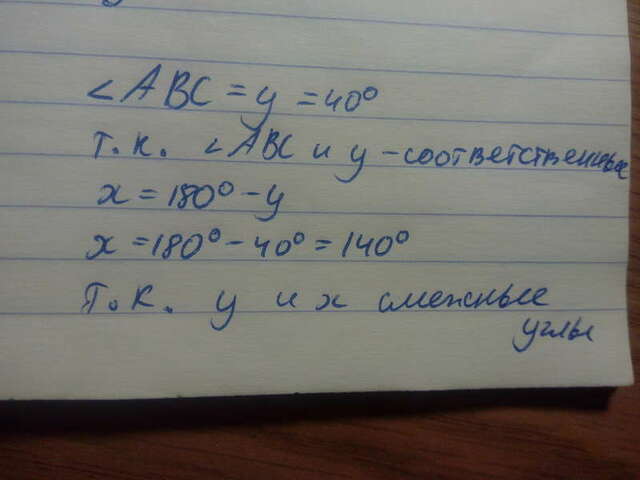 ∠ABC = y = 40°
т.к. ∠ABC и y - соответственные
x = 180° - y
x = 180° - 40° = 140°
Т.к. y и x смежные
углы